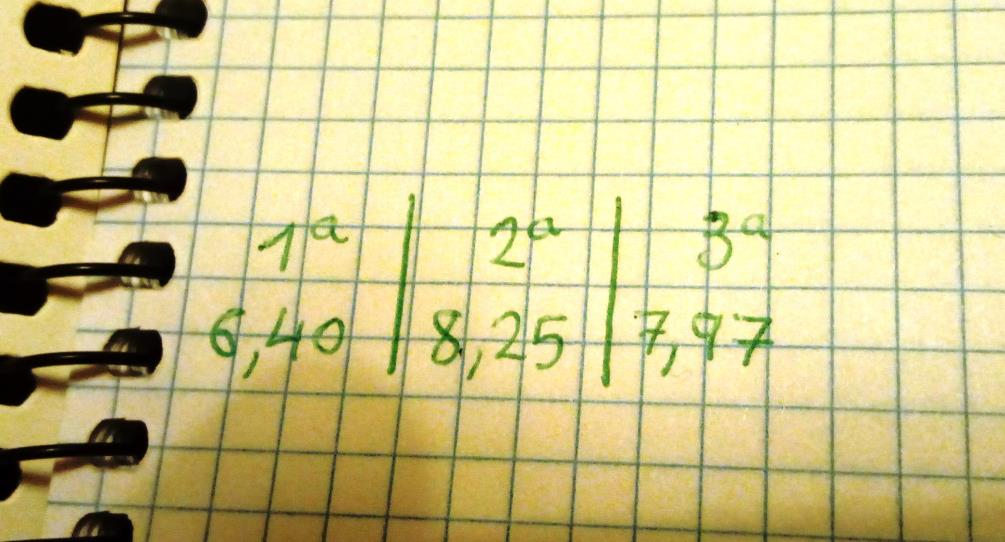 1ª | 2ª | 3ª
6,40 | 8,25 | 7,97